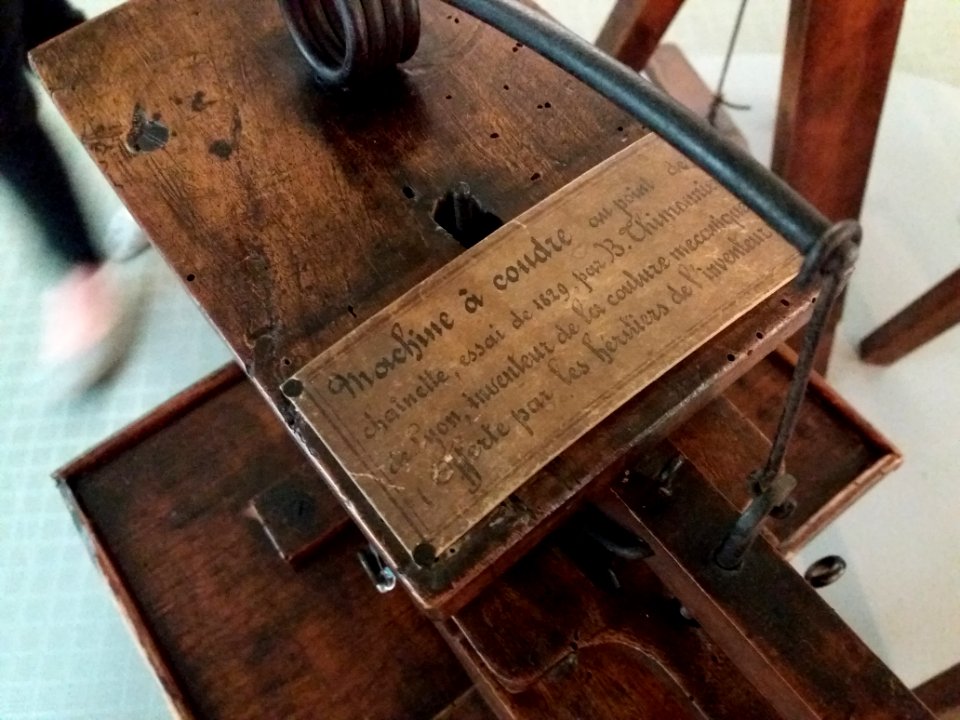 Machine à coudre au point de
chainette, essai de 1829, par B. Thimonnier
de Lyon, inventeur de la couture mecanique
Offerte par les héritiers de l'inventeur